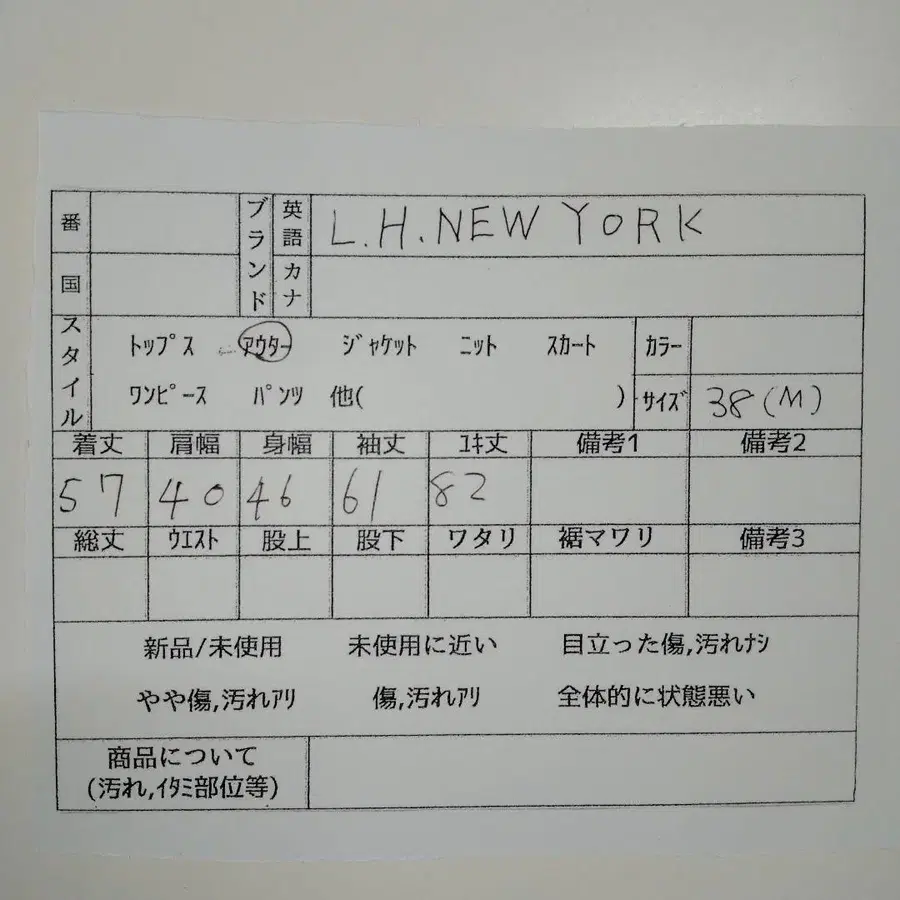 番 ブランド 英語 L.H.NEW YORK
国 カナ
スタイル トップス アウター ジャケット ニット スカート カラー
ワンピース パンツ 他( ) サイズ 38(M)
着丈 肩幅 身幅 袖丈 ユキ丈 備考1 備考2
57 40 46 61 82
総丈 ウエスト 股上 股下 ワタリ 裾マワリ 備考3
新品/未使用 未使用に近い 目立った傷,汚れナシ
やや傷,汚れアリ 傷,汚れアリ 全体的に状態悪い
商品について
(汚れ,イタミ部位等)